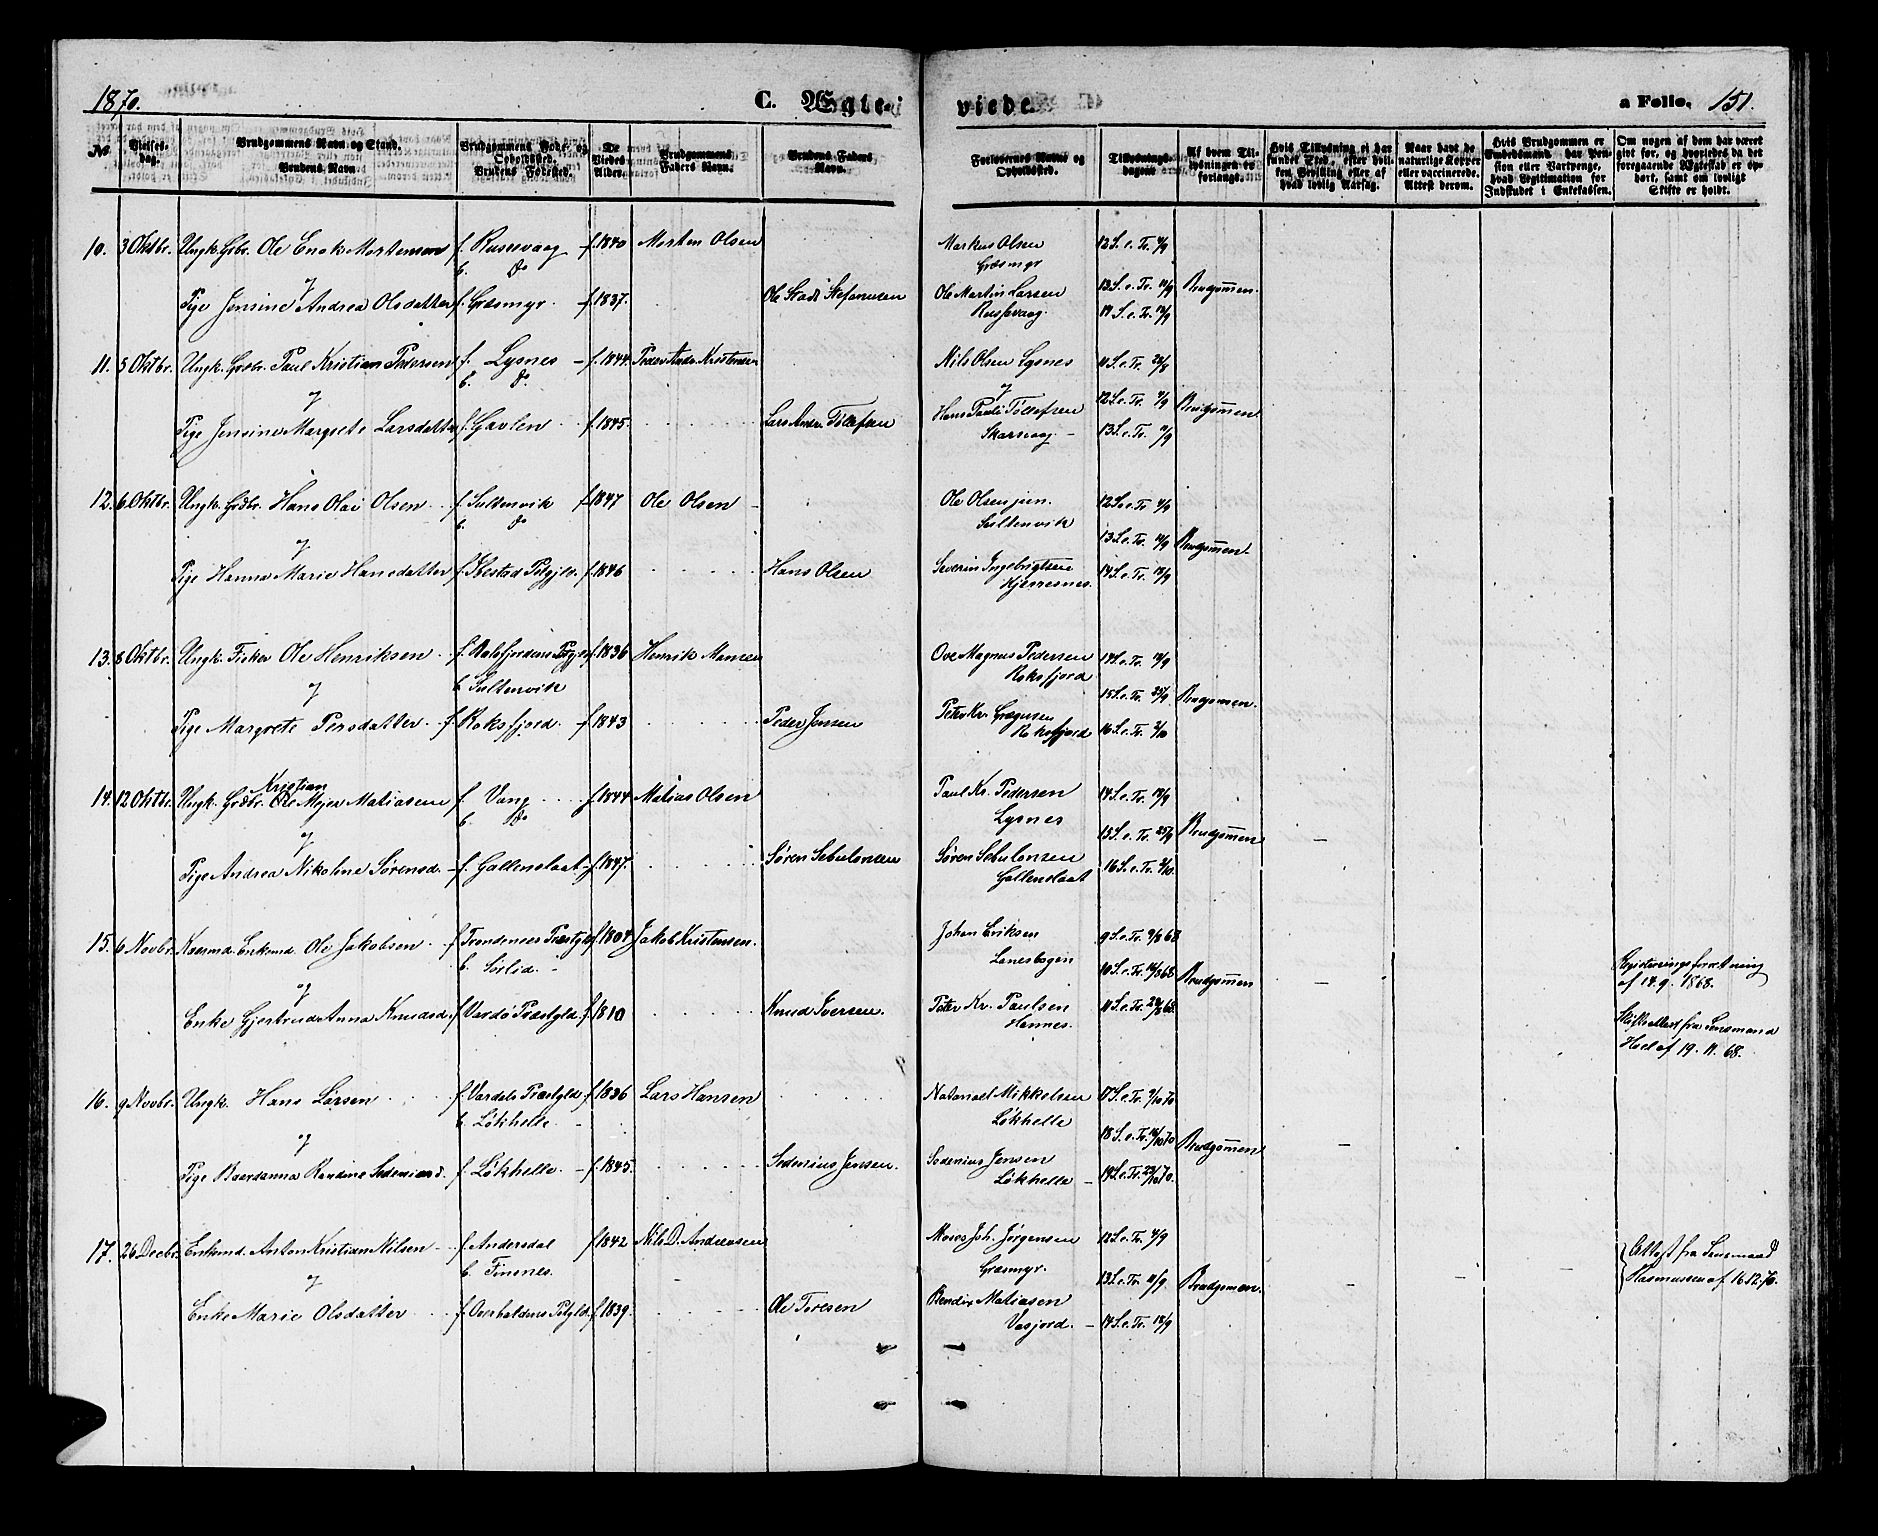 1870.
C. Ægte-
viede.
a Folio. 151.
No
Vielses-dag.
Brudgommens Navn og Stand.
Brudens Navn.
Brudgommens Føde- og Opholdssted.
Brudens Fødested.
De Viedes Alder.
Brudgommens Faders Navn.
Brudens Faders Navn.
Forlovernes Navne og Opholdssted.
Tillysnings-dagene
Af hvem Tillysningen er forlangt.
Hvis Tillysning ei har fundet Sted, efter hvilken Bevilling eller af hvad lovlig Aarsag.
Naar havt de naturlige Kopper eller vaccinerede. Attest derom.
Hvis Brudgommen er Embedsmand, har Pension eller Vartpenge, hvad Legitimation for Indskudet i Enkekassen.
Om nogen af dem har været gift før, og hvorledes da det foregaaende Ægteskab er ophørt, samt om lovligt Skifte er holdt.
10. 3 Oktbr. Ungk. Grbr. Ole Enok Mortensen f. Russevaag f. 1840 Morten Olsen Markus Olsen 12 S. e. Tr. 4/9
b. do Græsmyr
og Ole Martin Larsen 13 S. e. Tr. 11/9 Brudgommen.
Pige Jensine Andrea Olsdatter f. Græsmyr f. 1837. Ole Stadt Stefanusen Russevaag. 14 S. e. Tr. 18/9
11. 5 Oktbr. Ungk. Grdbr. Paul Kristian Pedersen f. Lysnes f. 1844. Peder Andr. Kristensen Nils Olsen Lysnes 11 S. e. Tr. 28/8
b. do
og Hans Pauli Tollefsen 12 S. e. Tr. 4/9 Brudgommen.
Pige Jensine Margrete Larsdatter f. Gavlen f. 1845. Lars Andr. Tollefsen Skarsvaag. 13 S. e. Tr. 11/9
12. 6 Oktbr. Ungk. Grdbr. Hans Olai Olsen f. Sultenvik f. 1847 Ole Olsen Ole Olsen jun. 12 S. e. Tr. 4/9
b. do Sultenvik
og 13 S. e. Tr. 11/9 Brudgommen.
Pige Hanna Marie Hansdatter f. Ibestad Pstgjld. f. 1846 Hans Olsen Severin Ingebrigtsen 14 S. e. Tr. 18/9
Kjerresnes.
13. 8 Oktbr. Ungk. Fisker Ole Henriksen f. 1836 Henrik Hansen Ove Magnus Pedersen 14 S. e. Tr. 18/9
b. Sultenvik Roksfjord
og 15 S. e. Tr. 25/9 Brudgommen.
Pige Margrete Persdatter f. Roksfjord f. 1843 Peder Jensen Peter Kr. Gregusen 16 S. e. Tr. 2/10
Roksfjord
14. 12 Oktbr. Ungk. Grdbr. Ole Kristian Mejer Matiasen f. Vang f. 1844 Matias Olsen Paul Kr. Pedersen 14 S. e. Tr. 18/9
b. do Lysnes
og 15 S. e. Tr. 25/9 Brudgommen
Pige Andrea Nikoline Sørensd. f. Gallenslaat f. 1847. Søren Sebulonsen Søren Sebulonsen 16 S. e. Tr. 2/10.
Gallenslaat
15. 6 Novbr. Enkemd. Ole Jakobsen f. Trondenes Præstgjld. f. 1804 Jakob Kristensen. Johan Eriksen 9 S. e. Tr. 9/8 68
b. Sørlid. Lanesbogen
og 10 S. e. Tr. 16/8 68 Brudgommen Registreringsforretning af 14. 9. 1868.
Enke Gjertrud Anna Knudsd. f. Vardø Præstgjld. f. 1810 Knud Iversen. Peter Kr. Paulsen 11 S. e. Tr. 23/8 68.
Hennes. Skifteattest fra Lensmand
Hoel af 19. 11. 68.
16. 9 Novbr. Ungk. Hans Larsen f. Vardals Præstgjld. f. 1836 Lars Hansen Natanael Mikkelsen 17 S. e. Tr. 9/10 70
b. Løkhelle Løkhelle
og 18 S. e. Tr. 16/10 70 Brudgommen
Pige Baardanna Randine Sedeniusd. f. Løkhelle f. 1845. Sedenius Jensen. Sedenius Jensen 19 S. e. Tr. 23/10 70.
Løkhelle
17. 26 Decbr. Enkemd. Anton Kristian Nilsen f. Andersdal f. 1842 Nils D. Andreasen Moses Joh. Jørgensen 12 S. e. Tr. 4/9
b. Finsnes. Græsmyr.
og 13 S. e. Tr. 11/9. Brudgommen. Attest fra Lensmand
Rasmussen af 16.12.70.
Enke Marie Olsdatter f. Overhaldens Pstgjld. f. 1839. Ole Toresen Bendix Matiasen 14 S. e. Tr. 18/9
Vasjord.